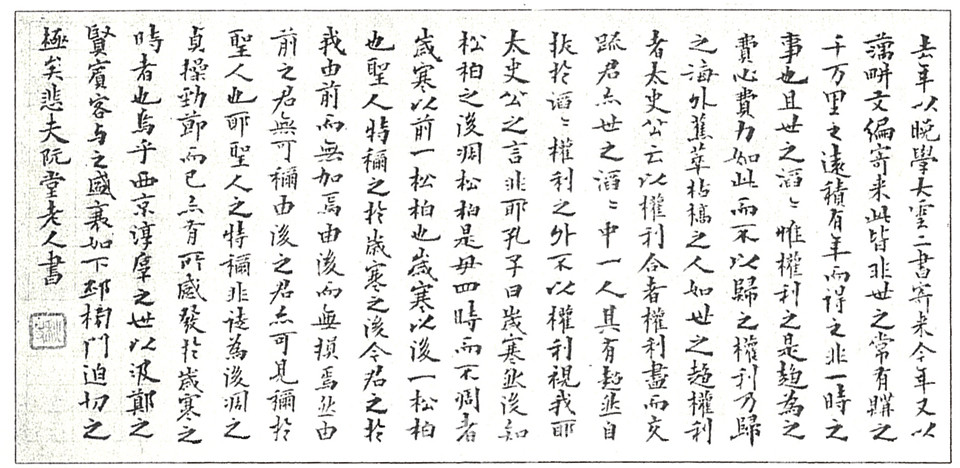 去年以晚學大雲二書寄來今年又以
藕畊文編寄來此皆非世之常有購之
千万里之遠積有年而得之非一時之
事也且世之滔〻惟權利之是趨為之
費心費力如此而不以歸之權利乃歸
之海外蕉萃枯槁之人如世之趨權利
者太史公云以權利合者權利盡而交
踈君亦世之滔〻中一人其有超然自
拔於滔〻權利之外不以權利視我耶
太史公之言非耶孔子曰歲寒然後知
松柏之後凋松柏是毋四時而不凋者
歲寒以前一松柏也歲寒以後一松柏
也聖人特稱之於歲寒之後今君之於
我由前而無加焉由後而無損焉然由
前之君無可稱由後之君亦可見稱於
聖人也耶聖人之特稱非徒為後凋之
貞操勁節而已亦有所感發於歲寒之
時者也烏乎西京淳厚之世以汲鄭之
賢賓客与之盛衰如下邳榜門迫切之
極矣悲夫阮堂老人書